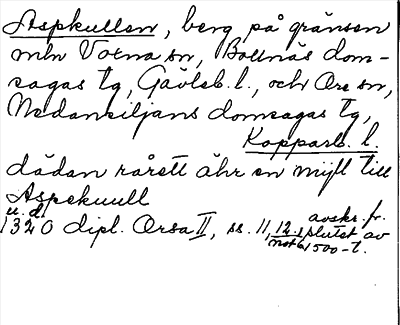 Aspkullen, berg på gränsen
mln Voxna sn, Bollnäs dom-
sagas tg, Gävleb. l., och Ore sn,
Nedansiljans domsagas tg,
Kopparb. l.
dädan rårett ähr en mijll till
Aspekuull
u. d.
1320 dipl. Orsa II, ss. 11, 12, avskr. fr.
not 6 slutet av
1500-t.